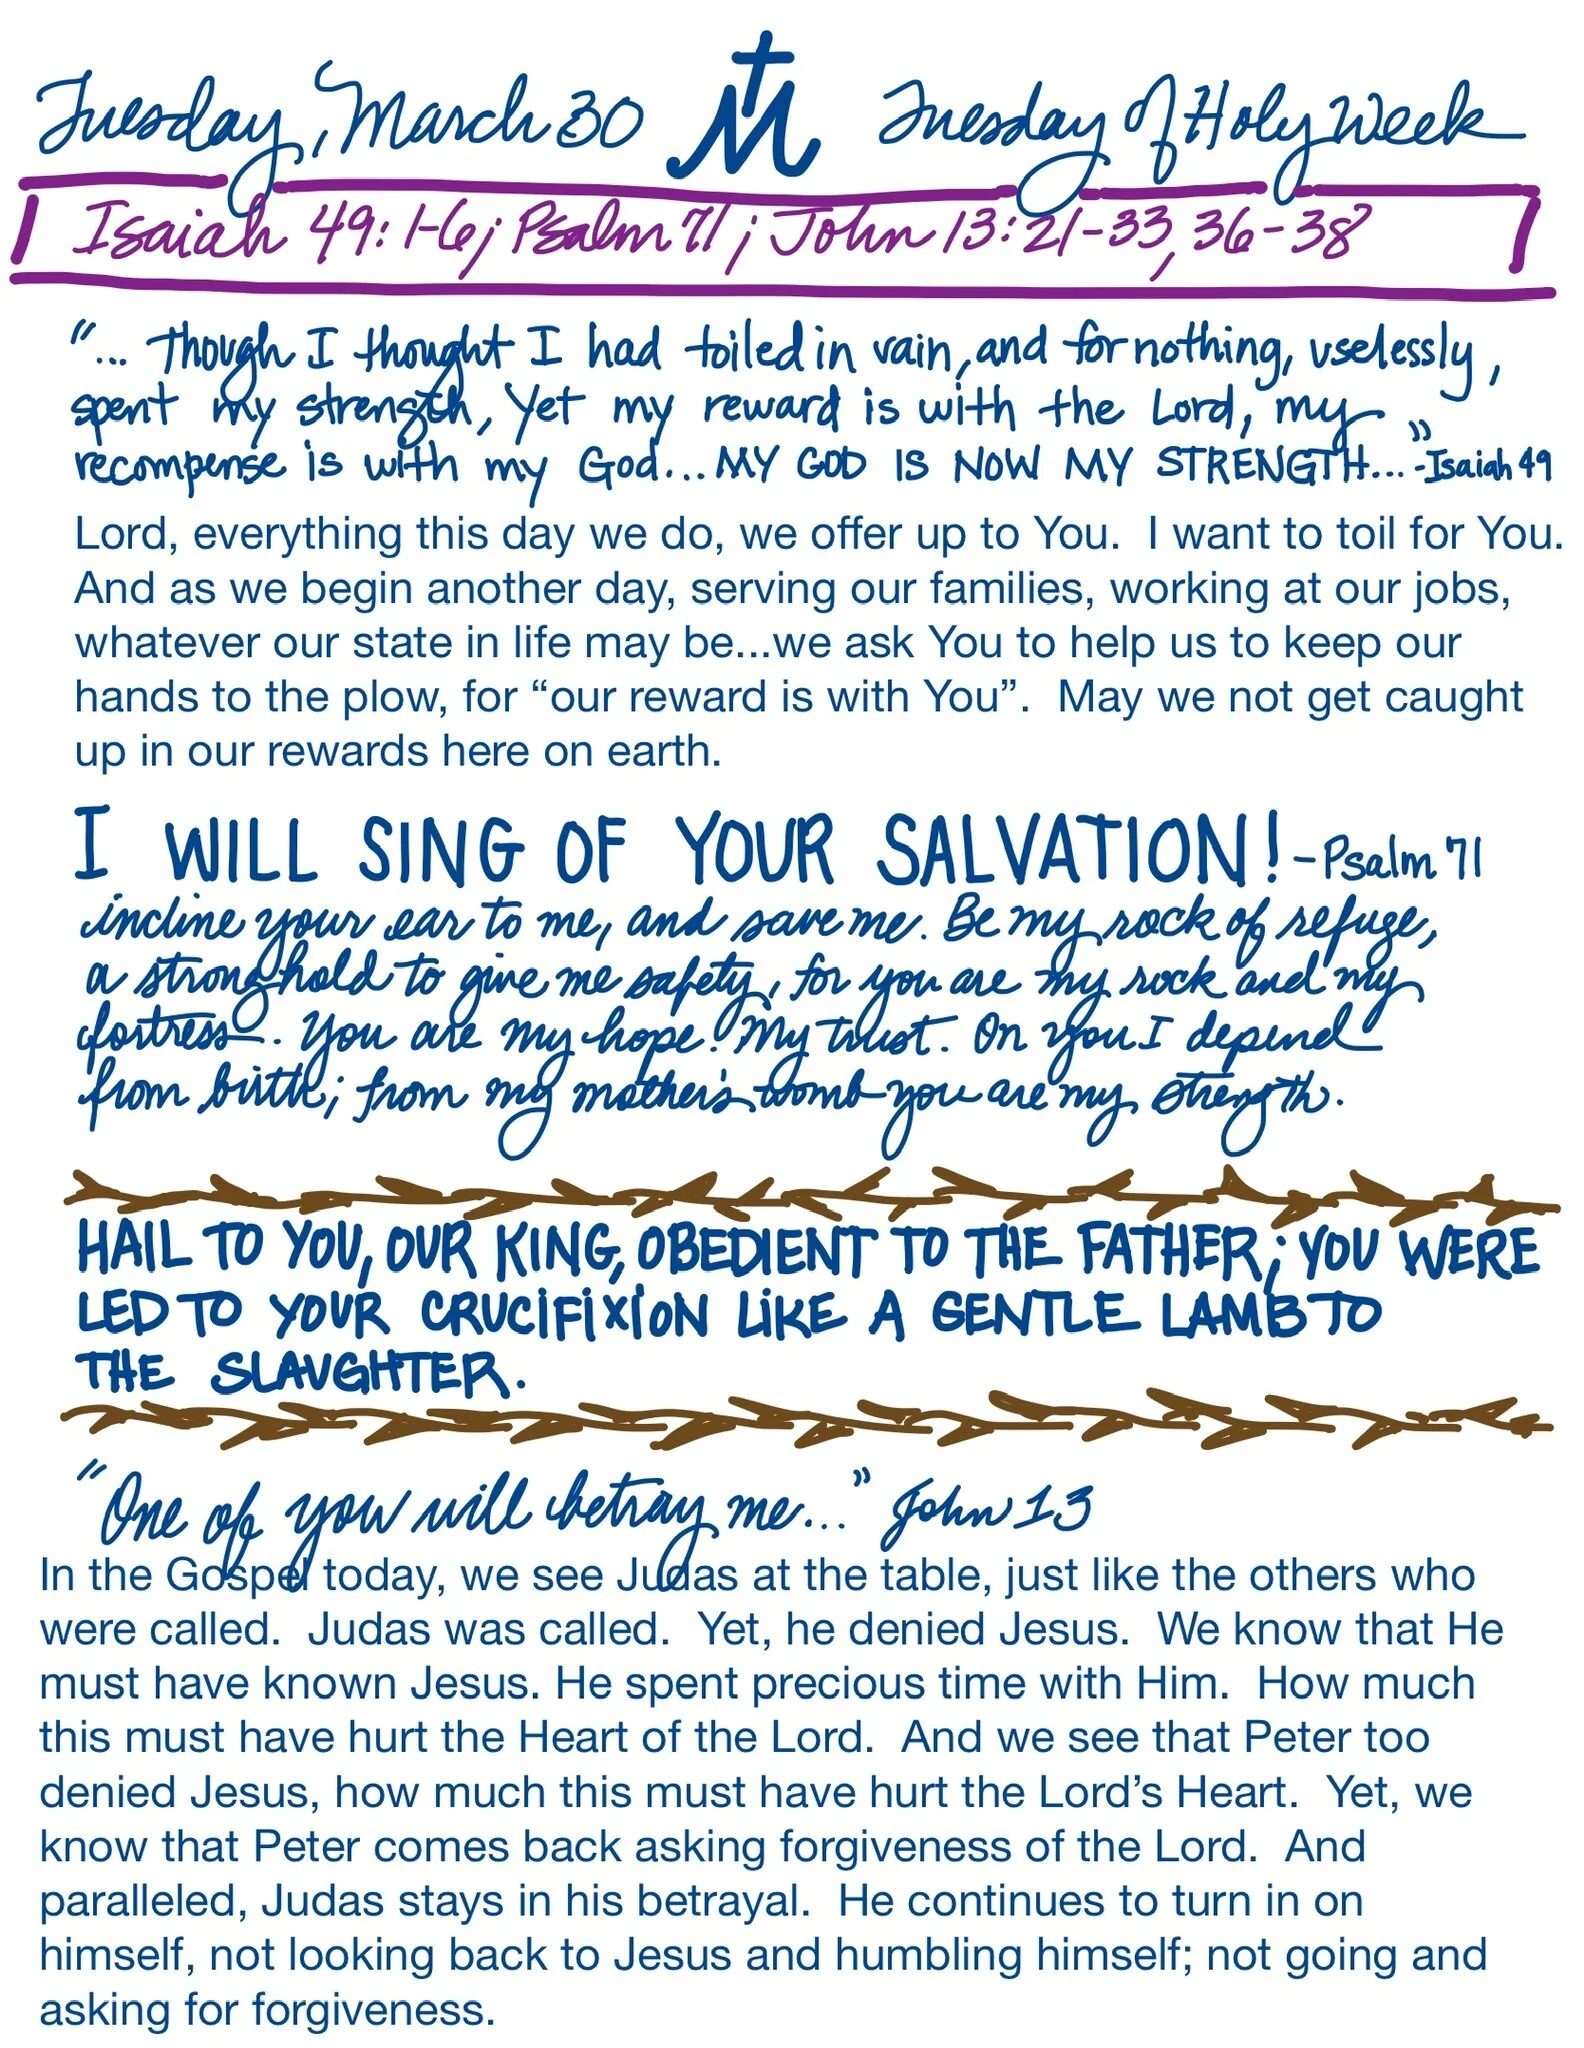 Tuesday, March 30 M Tuesday of Holy Week
Isaiah 49:1-6; Psalm 71; John 13:21-33, 36-38
"... Though I thought I had toiled in vain, and for nothing, uselessly,
spent my strength, Yet my reward is with the Lord, my
recompense is with my God...MY GOD IS NOW MY STRENGTH..." -Isaiah 49
Lord, everything this day we do, we offer up to You.  I want to toil for You.
And as we begin another day, serving our families, working at our jobs,
whatever our state in life may be...we ask You to help us to keep our
hands to the plow, for “our reward is with You”.  May we not get caught
up in our rewards here on earth.
I WILL SING OF YOUR SALVATION! -Psalm 71
incline your ear to me, and save me. Be my rock of refuge,
a stronghold to give me safety, for you are my rock and my
fortress. You are my hope! My trust. On you I depend
from birth; from my mother's womb you are my strength.
HAIL TO YOU, OUR KING, OBEDIENT TO THE FATHER; YOU WERE
LED TO YOUR CRUCIFIXION LIKE A GENTLE LAMB TO
THE SLAUGHTER.
"One of you will betray me..." John 13
In the Gospel today, we see Judas at the table, just like the others who
were called.  Judas was called.  Yet, he denied Jesus.  We know that He
must have known Jesus. He spent precious time with Him.  How much
this must have hurt the Heart of the Lord.  And we see that Peter too
denied Jesus, how much this must have hurt the Lord’s Heart.  Yet, we
know that Peter comes back asking forgiveness of the Lord.  And
paralleled, Judas stays in his betrayal.  He continues to turn in on
himself, not looking back to Jesus and humbling himself; not going and
asking for forgiveness.